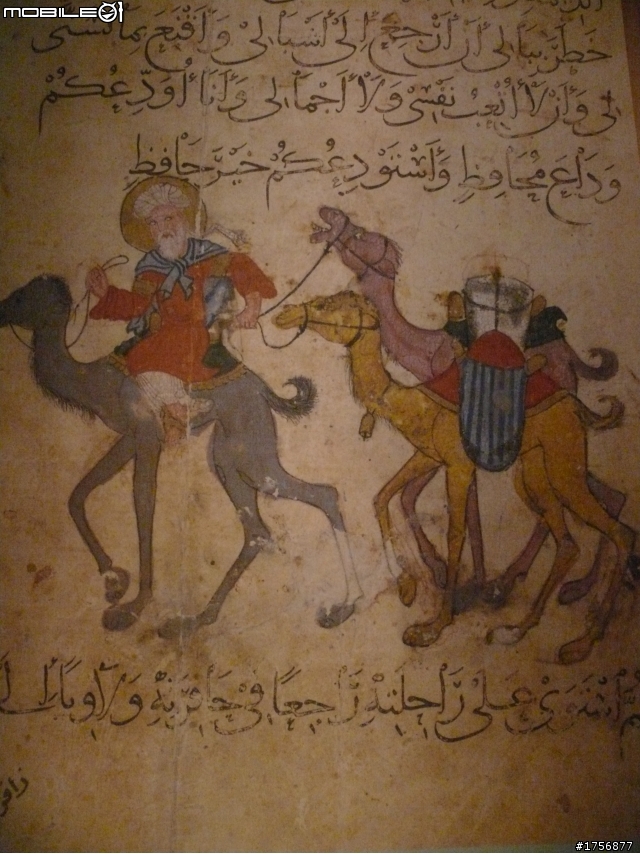 MOBILE01
خَطَرَ بِبَالِي أَنْ أَرْجِعَ إِلَى أَشْبَالِي وَأَقْنَعَ بِمَا تَسَنَّى
لِي وَأَنْ لَا أُتْعِبَ نَفْسِي وَلَا أَجْمَالِي وَأَنَا أُوَدِّعُكُمْ
وَدَاعَ مُحَافِظٍ وَأَسْتَوْدِعُكُمْ خَيْرَ حَافِظٍ
ثُمَّ اسْتَوَى عَلَى رَاحِلَتِهِ رَاجِعًا فِي حَافِرَتِهِ وَلَاوِيًا إِلَى
#1756877